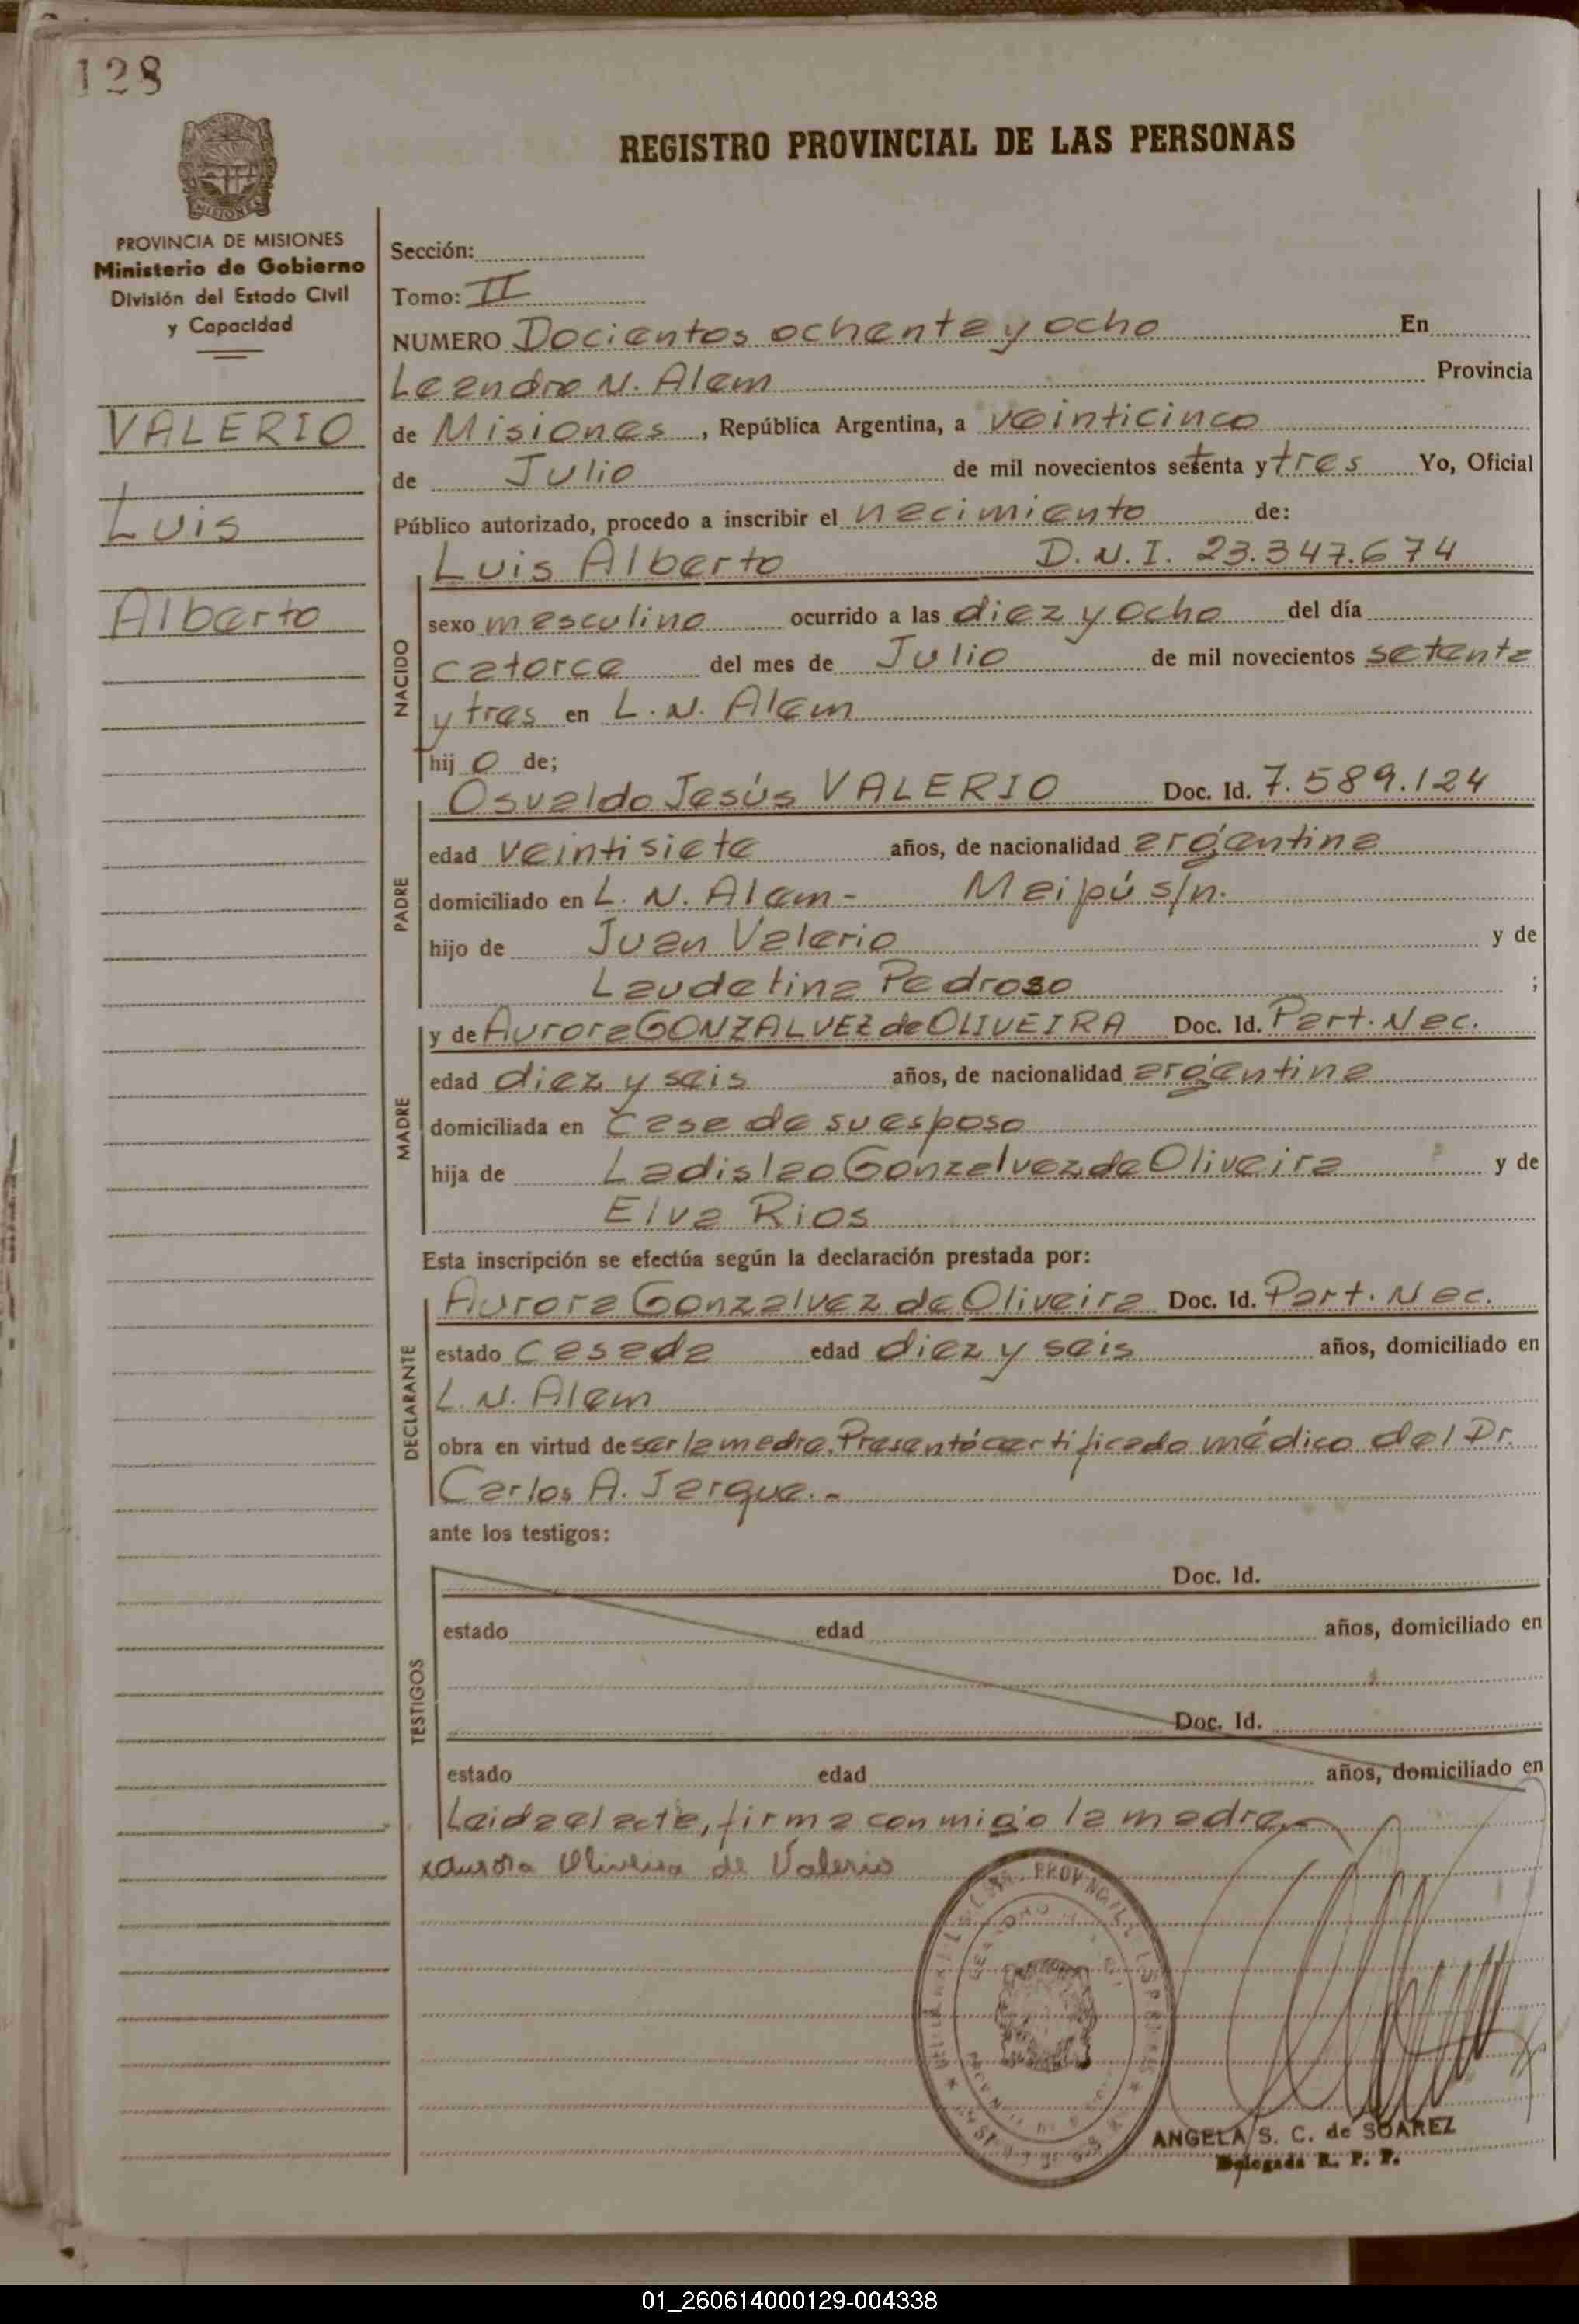 128
MISIONES
REGISTRO PROVINCIAL DE LAS PERSONAS
PROVINCIA DE MISIONES
Ministerio de Gobierno
División del Estado Civil
y Capacidad
VALERIO
Luis
Alberto
Sección:
Tomo: II
NUMERO Docientos ochenta y ocho En
Leandro N. Alem Provincia
de Misiones, República Argentina, a veinticinco
de Julio de mil novecientos setenta y tres Yo, Oficial
Público autorizado, procedo a inscribir el nacimiento de:
NACIDO
Luis Alberto D.N.I. 23.347.674
sexo masculino ocurrido a las diez y ocho del día
catorce del mes de Julio de mil novecientos setenta
y tres en L. N. Alem
hijo de;
PADRE
Osvaldo Jesús VALERIO Doc. Id. 7.589.124
edad veintisiete años, de nacionalidad argentina
domiciliado en L. N. Alem- Maipú s/n.
hijo de Juan Valerio y de
Laudelina Pedroso ;
MADRE
y de Aurora GONZALVEZ de OLIVEIRA Doc. Id. Part. Nac.
edad diez y seis años, de nacionalidad argentina
domiciliada en Casa de su esposo
hija de Ladislao Gonzalvez de Oliveira y de
Elva Rios
Esta inscripción se efectúa según la declaración prestada por:
DECLARANTE
Aurora Gonzalvez de Oliveira Doc. Id. Part. Nac.
estado casada edad diez y seis años, domiciliado en
L. N. Alem
obra en virtud de ser la madre. Presentó certificado médico del Dr.
Carlos A. Jarque.-
ante los testigos:
TESTIGOS
Doc. Id.
estado edad años, domiciliado en
Doc. Id.
estado edad años, domiciliado en
Leida el acta, firma conmigo la madre,
x Aurora Oliveira de Valerio
ANGELA S. C. de SOAREZ
Delegada R. P. P.
01_260614000129-004338